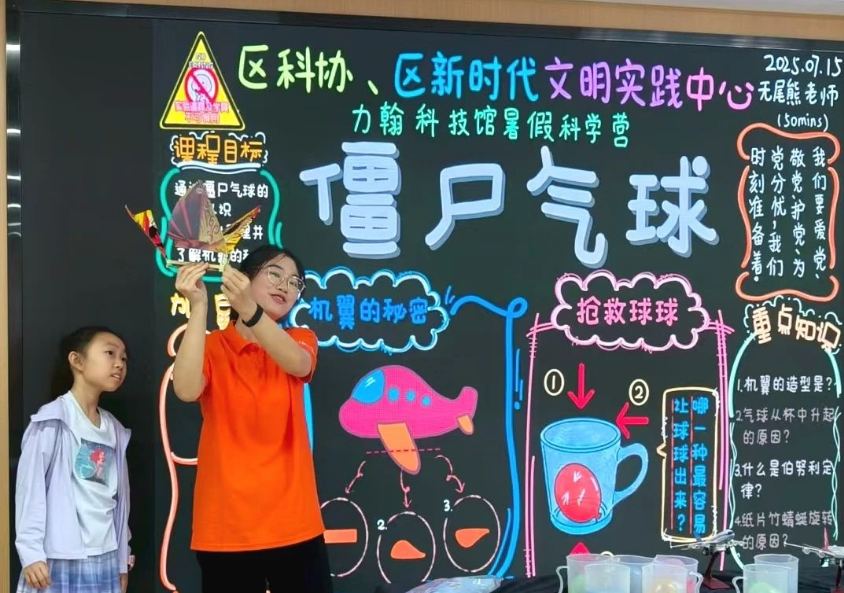 区科协、区新时代文明实践中心
2025.07.15
无尾熊老师
(50mins)
力翰科技馆暑假科学营
课程目标
僵尸气球
我们要爱党、
敬党、护党、为
党分优,我们
时刻准备着!
机翼的秘密
2.
3.
抢救球球
①
②
哪一种最容易
让球球出来?
重点知识
1.机翼的造型是?
2.气球从杯中升起
的原因?
3.什么是伯努利定
律?
4.纸片竹蜻蜓旋转
的原因?